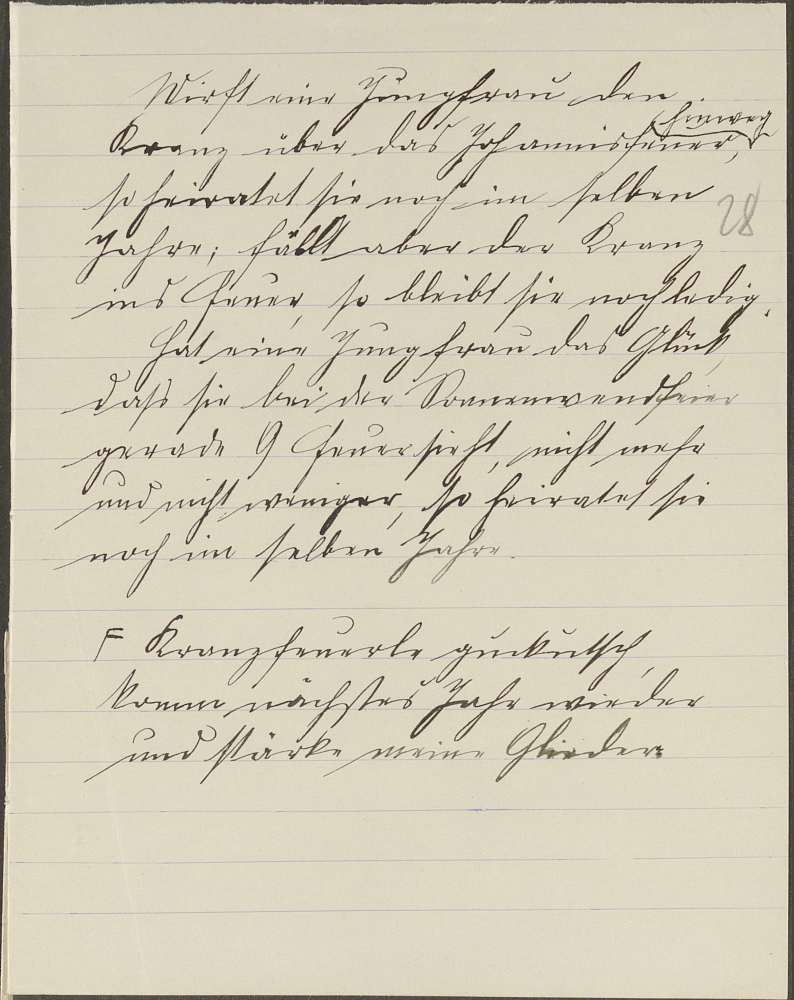 Wirft eine Jungfrau den
Kranz über das Johannisfeuer, hinweg
so heiratet sie noch im selben
28
Jahre; fällt aber der Kranz
ins Feuer, so bleibt sie noch ledig.
Hat eine Jungfrau das Glück,
dass sie bei der Sonnenwendfeier
gerade 9 Feuer sieht, nicht mehr
und nicht weniger, so heiratet sie
noch im selben Jahre.
F Kranzfeuerle guckutsch,
komm nächstes Jahr wieder
und stärke meine Glieder.